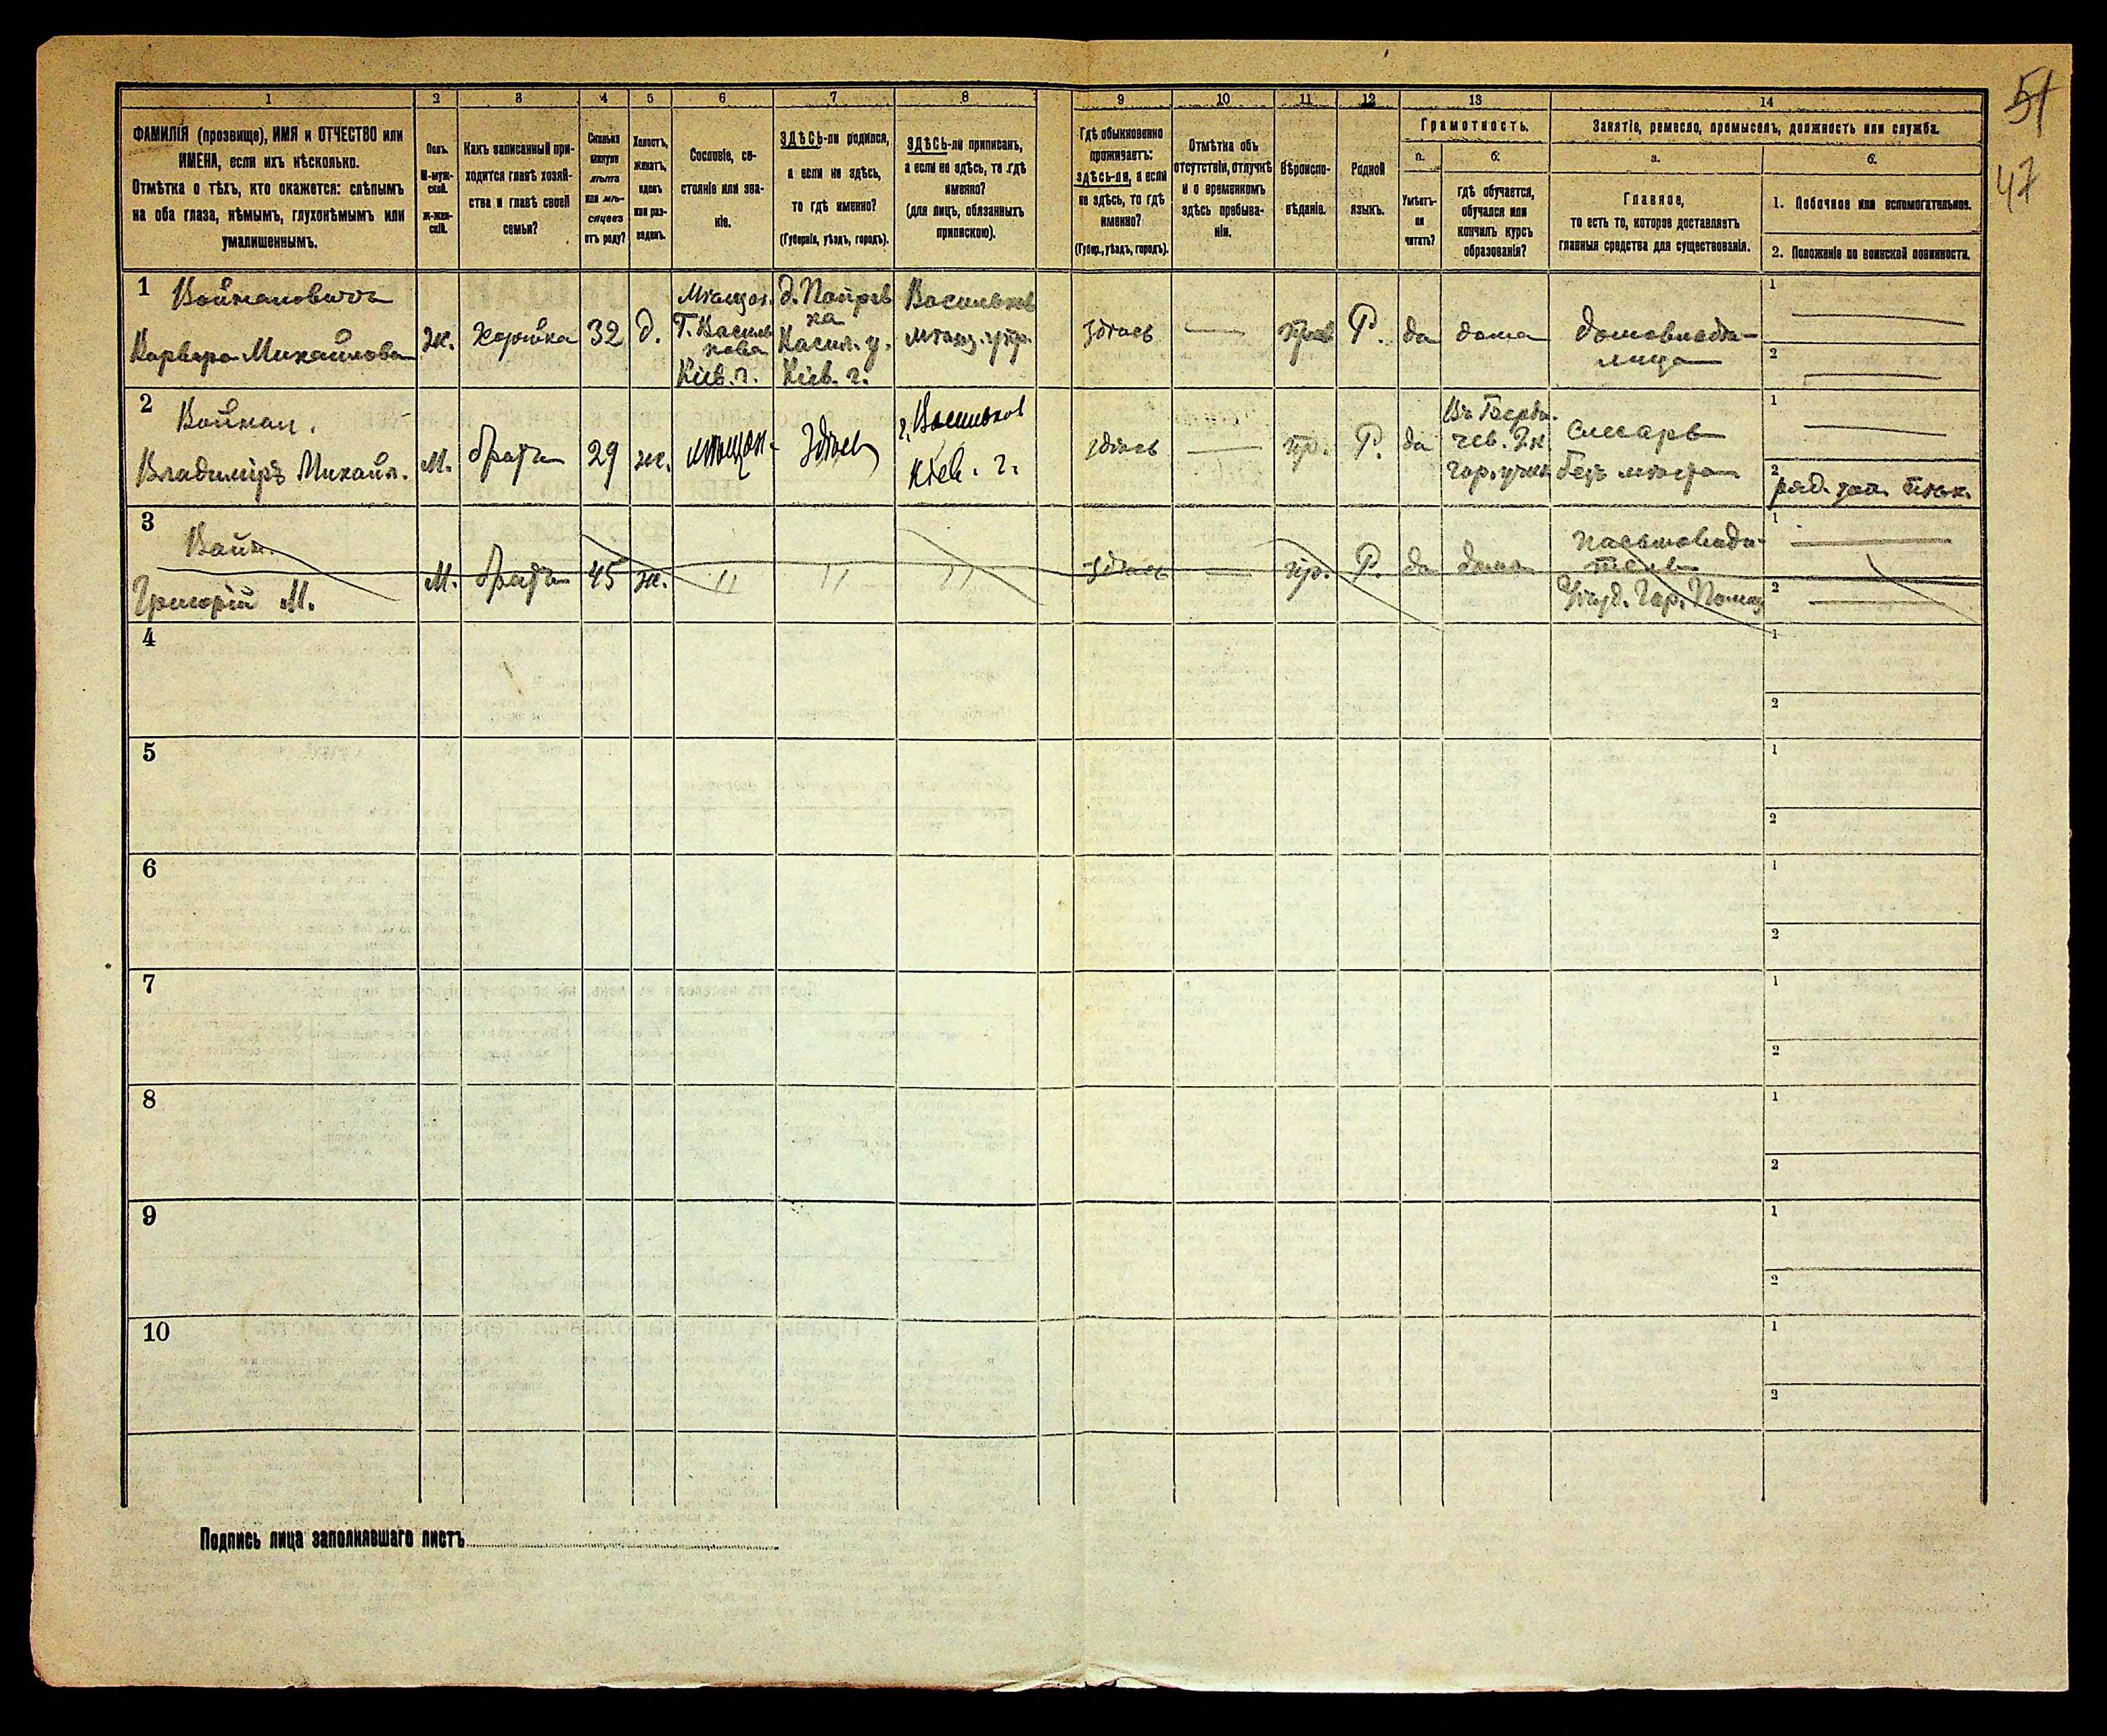 51
47
1
2
3
4
5
6
7
8
9
10
11
12
13
14
ФАМИЛІЯ (прозвище), ИМЯ и ОТЧЕСТВО или
ИМЕНА, если ихъ нѣсколько.
Отмѣтка о тѣхъ, кто окажется: слѣпымъ
на оба глаза, нѣмымъ, глухонѣмымъ или
умалишеннымъ.
Полъ.
М-муж-
ской.
Ж-жен-
скій.
Какъ записанный при-
ходится главѣ хозяй-
ства и главѣ своей
семьи?
Сколько
минуло
лѣтъ
или мѣ-
сяцевъ
отъ роду?
Холостъ,
женатъ,
вдовъ
или раз-
веденъ.
Сословіе, со-
стояніе или зва-
ніе.
ЗДѢСЬ-ли родился,
а если не здѣсь,
то гдѣ именно?
(Губернія, уѣздъ, городъ).
ЗДѢСЬ-ли приписанъ,
а если не здѣсь, то гдѣ
именно?
(для лицъ, обязанныхъ
припискою).
Гдѣ обыкновенно
проживаетъ:
здѣсь-ли, а если
не здѣсь, то гдѣ
именно?
(Губер., уѣздъ, городъ).
Отмѣтка объ
отсутствіи, отлучкѣ
и о временномъ
здѣсь пребыва-
ніи.
Вѣроиспо-
вѣданіе.
Родной
языкъ.
Грамотность.
а.
Умѣетъ-
ли
читать?
б.
гдѣ обучается,
обучался или
кончилъ курсъ
образованія?
Занятіе, ремесло, промыселъ, должность или служба.
а.
Главное,
то есть то, которое доставляетъ
главныя средства для существованія.
б.
1. Побочное или вспомогательное.
2. Положеніе по воинской повинности.
1
Михайлова
ж.
32
д.
Кіев. г.
Кіев. г.
здѣсь
Р.
да
дома
домовладѣ-
лица
1
2
2
Владиміръ Михайл.
м.
братъ
29
ж.
мѣщан.
здѣсь
г. Васильков
Кіев. г.
здѣсь
пр.
Р.
да
слесарь
безъ мѣста
1
2
3
Григорій М.
м.
братъ
45
ж.
"
"
"
здѣсь
пр.
Р.
да
дома
письмоводи-
тель
1
2
4
1
2
5
1
2
6
1
2
7
1
2
8
1
2
9
1
2
10
1
2
Подпись лица заполнявшаго листъ